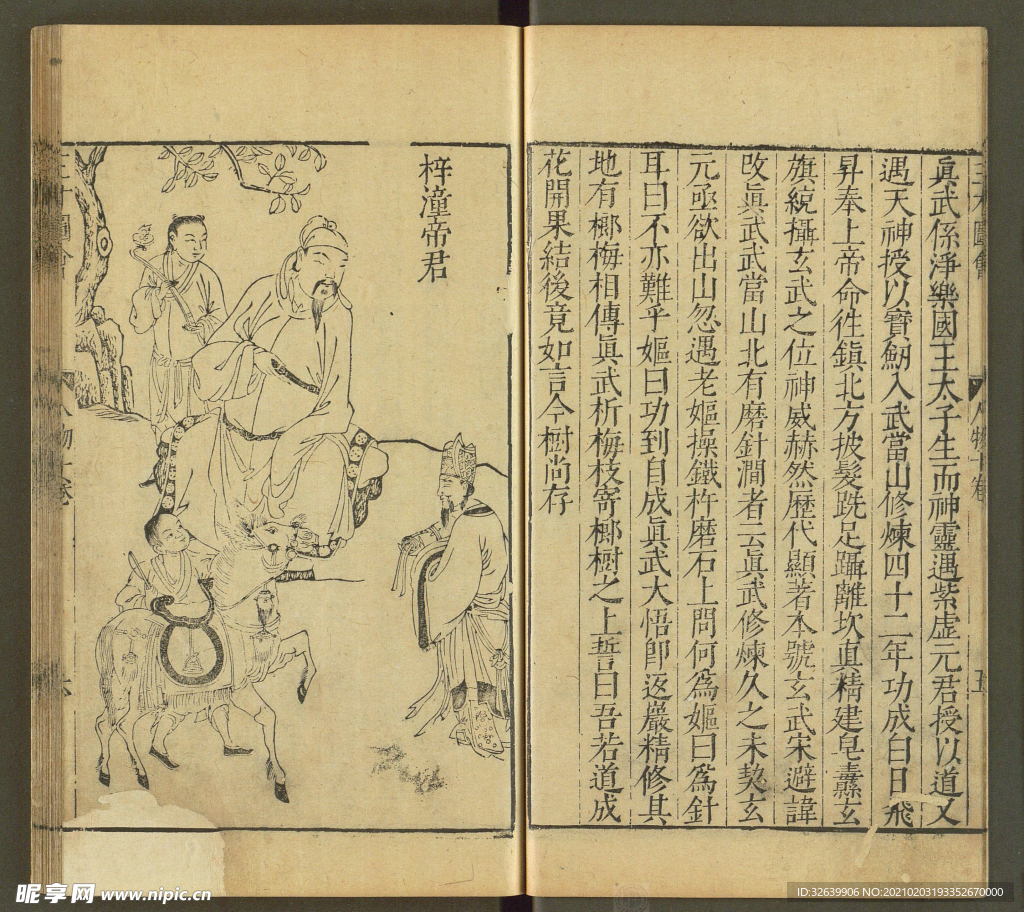 真武係淨樂國王太子生而神靈遇紫虛元君授以道又
遇天神授以寶劒入武當山修煉四十二年功成白日飛
昇奉上帝命徃鎮北方披髮跣足躡離坎真精建皂纛玄
旗統攝玄武之位神威赫然歷代顯著本號玄武宋避諱
改真武武當山北有磨針澗者云真武修煉久之未契玄
元亟欲出山忽遇老嫗操鐵杵磨石上問何為嫗曰為針
耳曰不亦難乎嫗曰功到自成真武大悟即返巖精修其
地有榔梅相傳真武折梅枝寄榔樹之上誓曰吾若道成
花開果結後竟如言今樹尚存
梓潼帝君
昵享网 www.nipic.cn
ID:32639906 NO:20210203193352670000